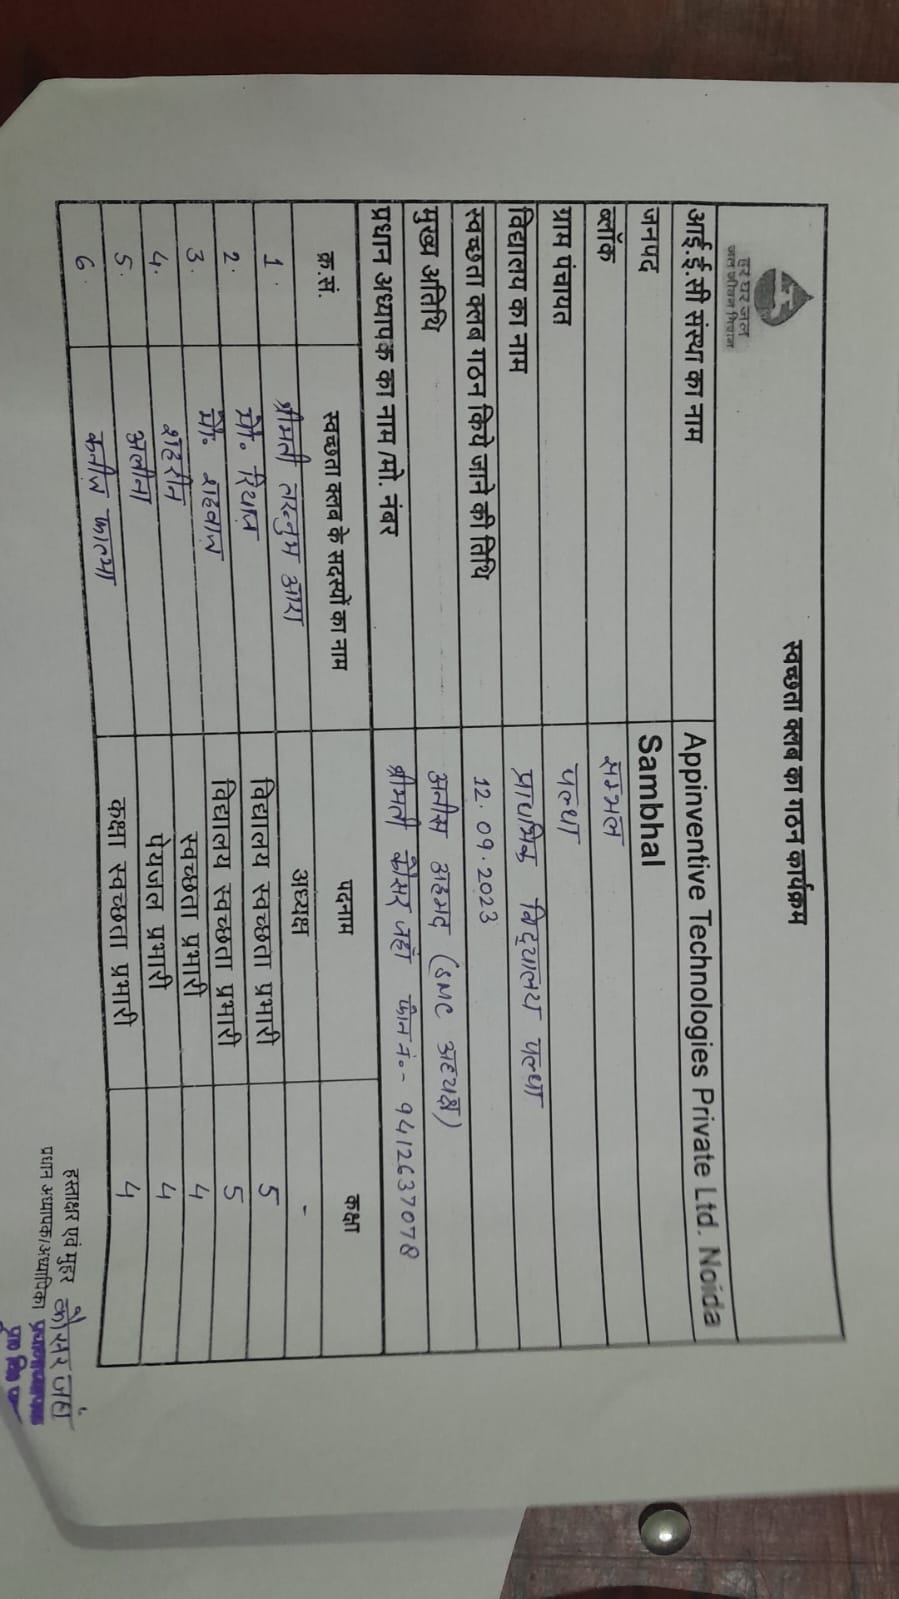 स्वच्छता क्लब का गठन कार्यक्रम
हर घर जल
जल जीवन मिशन
आई.ई.सी संस्था का नाम Appinventive Technologies Private Ltd. Noida
जनपद Sambhal
ब्लॉक सम्भल
ग्राम पंचायत पल्था
विद्यालय का नाम प्राथमिक विद्यालय पल्था
स्वच्छता क्लब गठन किये जाने की तिथि 12.09.2023
मुख्य अतिथि अनीस अहमद (SMC अध्यक्ष)
प्रधान अध्यापक का नाम /मो. नंबर श्रीमती कौसर जहाँ फोन नं०- 9412637078
क्र.सं. स्वच्छता क्लब के सदस्यों का नाम पदनाम कक्षा
1. श्रीमती तरन्नुम आरा अध्यक्ष -
2. मो० रियाज विद्यालय स्वच्छता प्रभारी 5
3. मो० शहबाज विद्यालय स्वच्छता प्रभारी 5
4. शहरीन स्वच्छता प्रभारी 4
5. अलीना पेयजल प्रभारी 4
6. कनीज फातमा कक्षा स्वच्छता प्रभारी 4
हस्ताक्षर एवं मुहर कौसर जहाँ
प्रधान अध्यापक/अध्यापिका